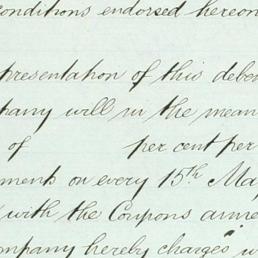 conditions endorsed hereon
presentation of this deben
pany will in the mean
of per cent per
ments on every 15th May
with the Coupons anne
ompany hereby charges w